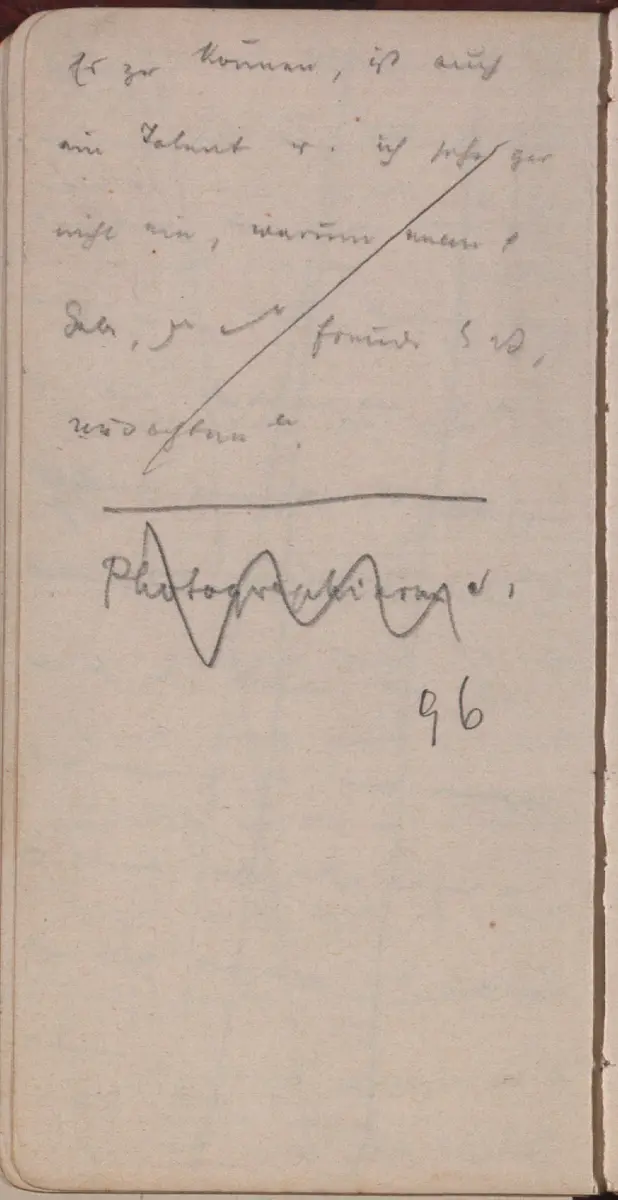 Es zu können, ist auch
ein Talent u. ich sehe gar
nicht ein, warum man
Gabe, Freude ist,
Photographieren
96